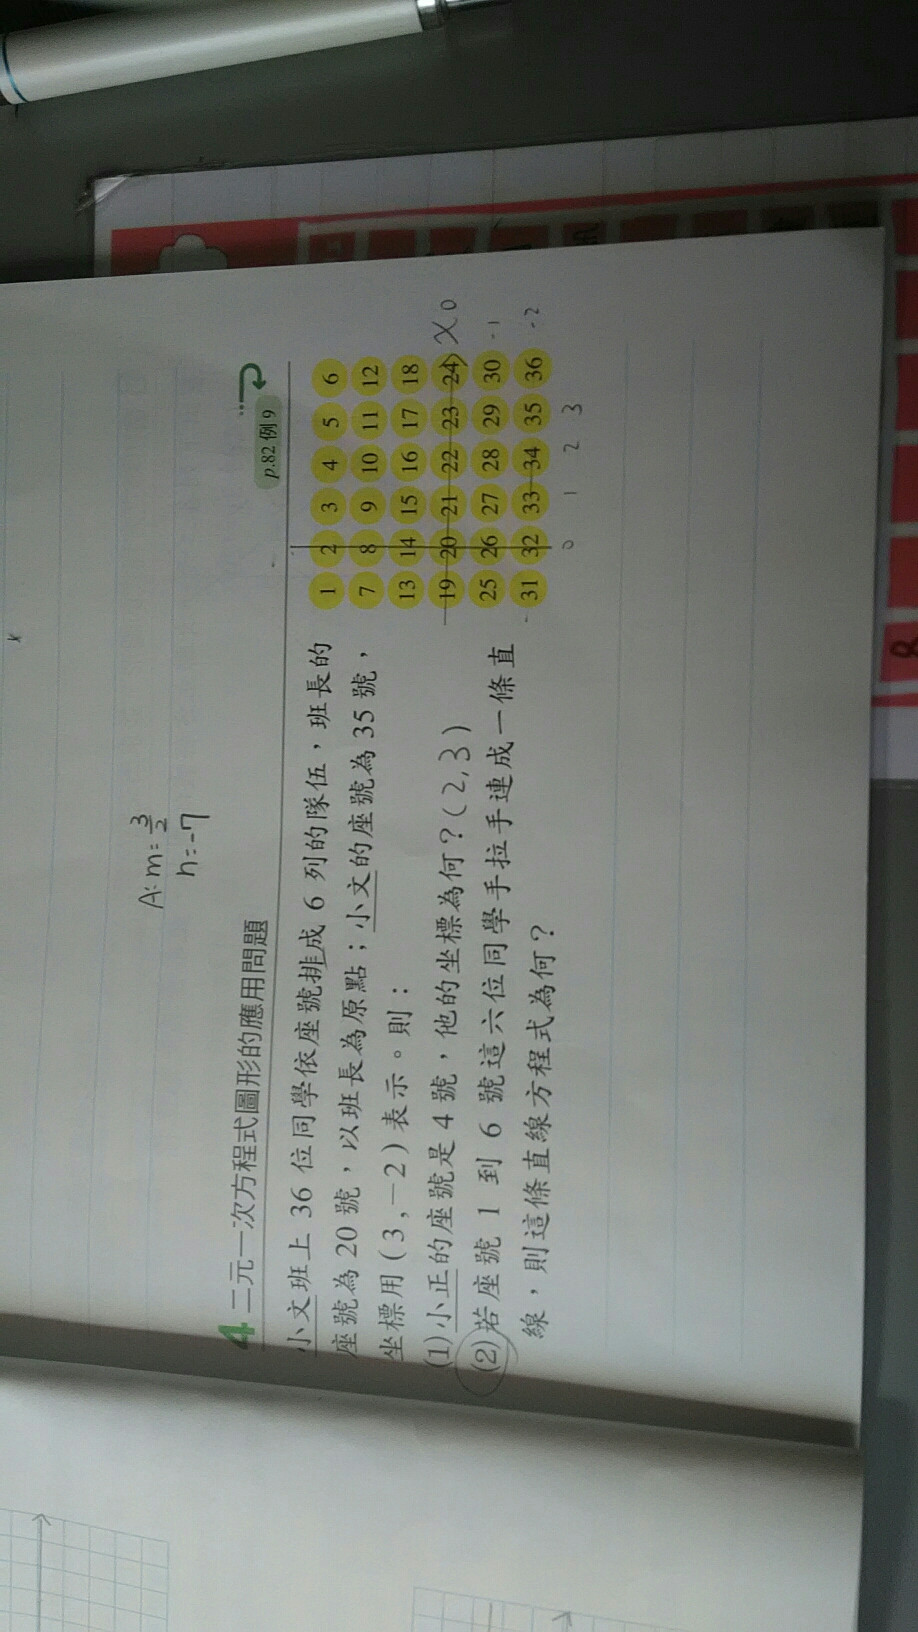 A: m = 3/2
n = -7
4 二元一次方程式圖形的應用問題
p.82 例 9
小文班上 36 位同學依座號排成 6 列的隊伍，班長的
座號為 20 號，以班長為原點；小文的座號為 35 號，
坐標用（3 , -2）表示。則：
(1) 小正的座號是 4 號，他的坐標為何？(2,3)
(2) 若座號 1 到 6 號這六位同學手拉手連成一條直
線，則這條直線方程式為何？
1 2 3 4 5 6
7 8 9 10 11 12
13 14 15 16 17 18
19 20 21 22 23 24 x 0
25 26 27 28 29 30 -1
31 32 33 34 35 36 -2
0 1 2 3
8